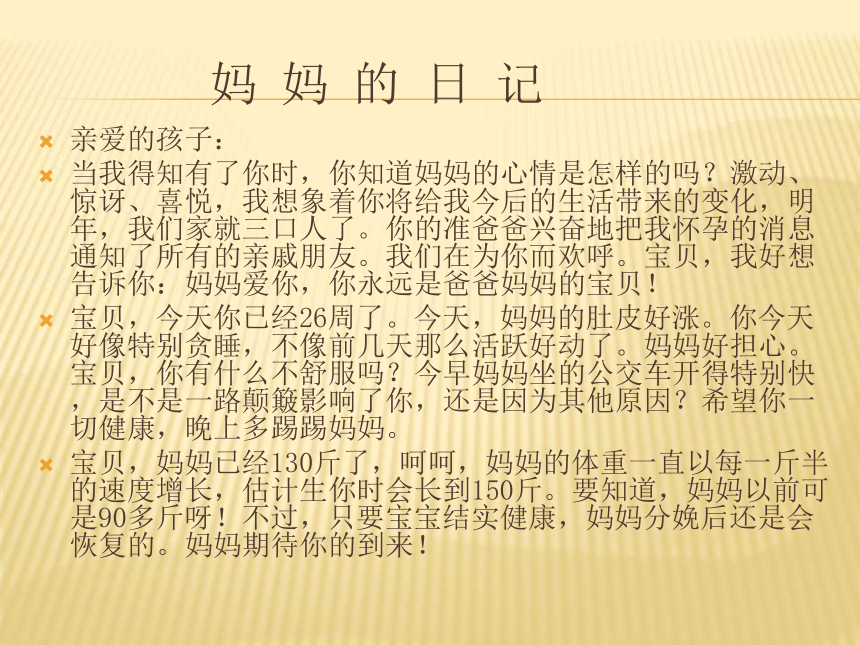 妈 妈 的 日 记
亲爱的孩子：
当我得知有了你时，你知道妈妈的心情是怎样的吗？激动、
惊讶、喜悦，我想象着你将给我今后的生活带来的变化，明
年，我们家就三口人了。你的准爸爸兴奋地把我怀孕的消息
通知了所有的亲戚朋友。我们在为你而欢呼。宝贝，我好想
告诉你：妈妈爱你，你永远是爸爸妈妈的宝贝！
宝贝，今天你已经26周了。今天，妈妈的肚皮好涨。你今天
好像特别贪睡，不像前几天那么活跃好动了。妈妈好担心。
宝贝，你有什么不舒服吗？今早妈妈坐的公交车开得特别快
，是不是一路颠簸影响了你，还是因为其他原因？希望你一
切健康，晚上多踢踢妈妈。
宝贝，妈妈已经130斤了，呵呵，妈妈的体重一直以每一斤半
的速度增长，估计生你时会长到150斤。要知道，妈妈以前可
是90多斤呀！不过，只要宝宝结实健康，妈妈分娩后还是会
恢复的。妈妈期待你的到来！